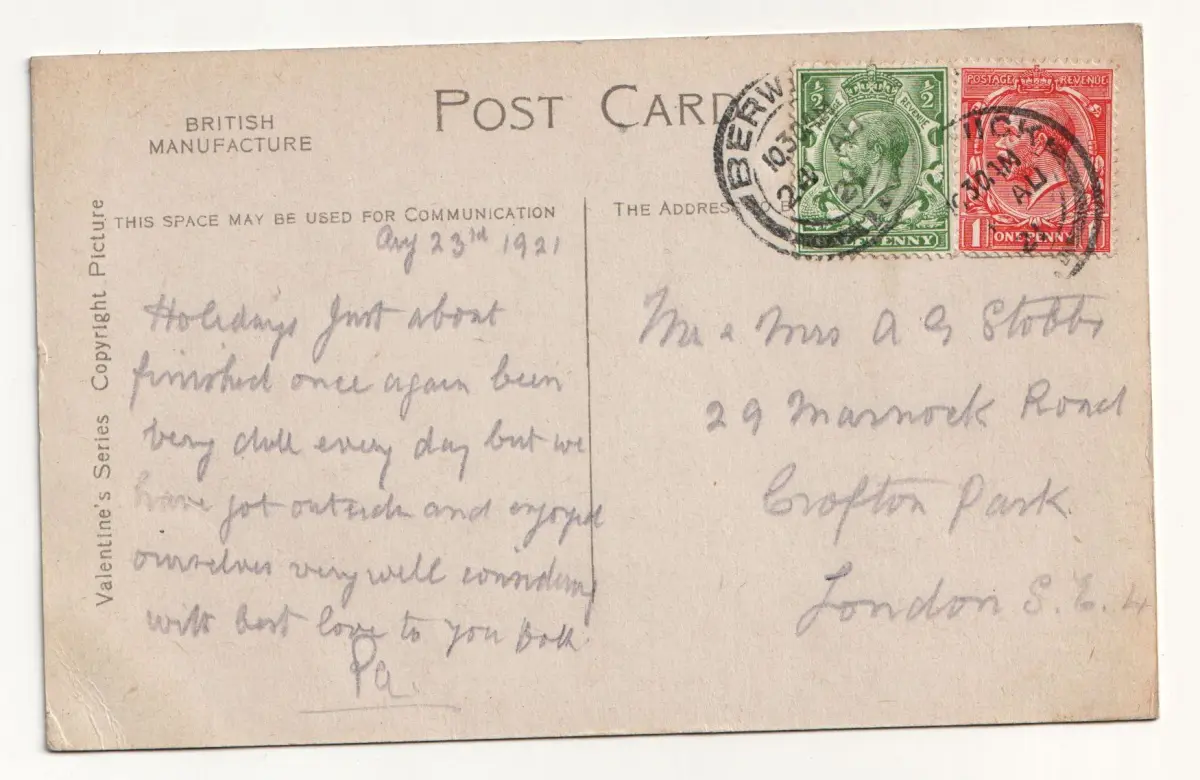 POST CARD
BRITISH
MANUFACTURE
THIS SPACE MAY BE USED FOR COMMUNICATION
THE ADDRESS
Valentine's Series Copyright Picture
½ ½
HALFPENNY
POSTAGE REVENUE
1 ONE PENNY
BERW
10.30
AU
21
Aug 23rd 1921
Holidays Just about
finished once again been
very dull every day but we
have got outside and enjoyed
ourselves very well considering
with best love to you both.
Pa.
Mr & Mrs A G Stobbs
29 Marnock Road
Crofton Park
London S.E.4